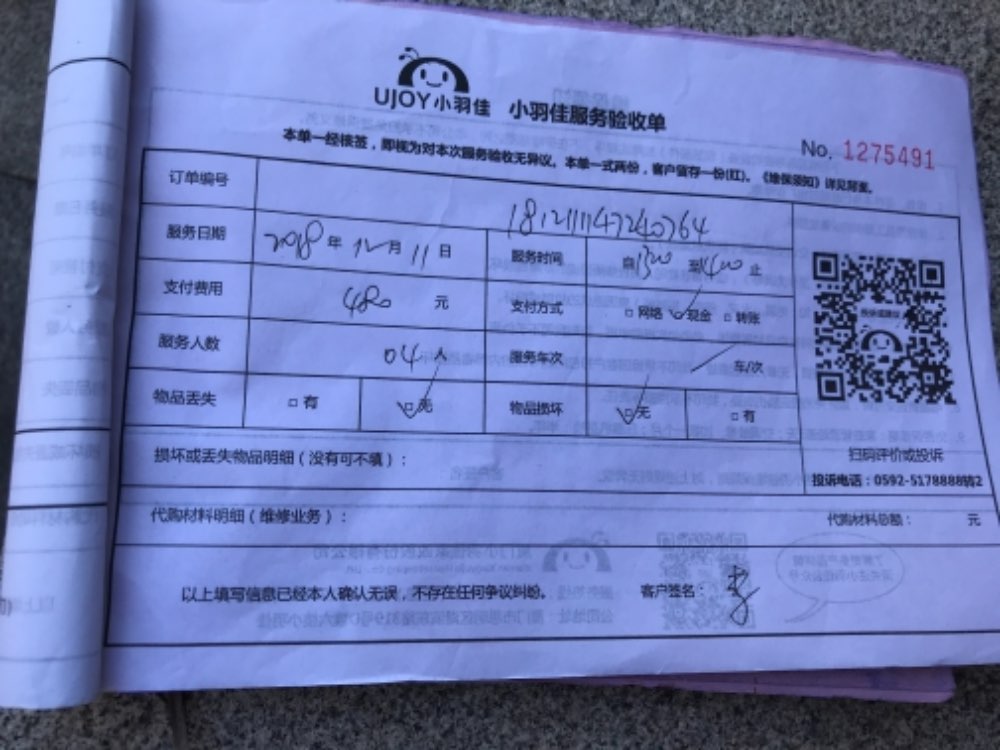 UJOY小羽佳 小羽佳服务验收单
No. 1275491
本单一经核签，即视为对本次服务验收无异议。本单一式两份，客户留存一份(红)。《维保须知》详见背面。
订单编号 18121111473240764
服务日期 2018年12月11日 服务时间 自1300至1400止
支付费用 480元 支付方式 □网络 ☑现金 □转账
服务人数 04人 服务车次 / 车/次
物品丢失 □有 ☑无 物品损坏 ☑无 □有
扫码评价或投诉
投诉电话：0592-5178888转2
损坏或丢失物品明细（没有可不填）：
代购材料明细（维修业务）： 代购材料总额： 元
以上填写信息已经本人确认无误，不存在任何争议纠纷。 客户签名：